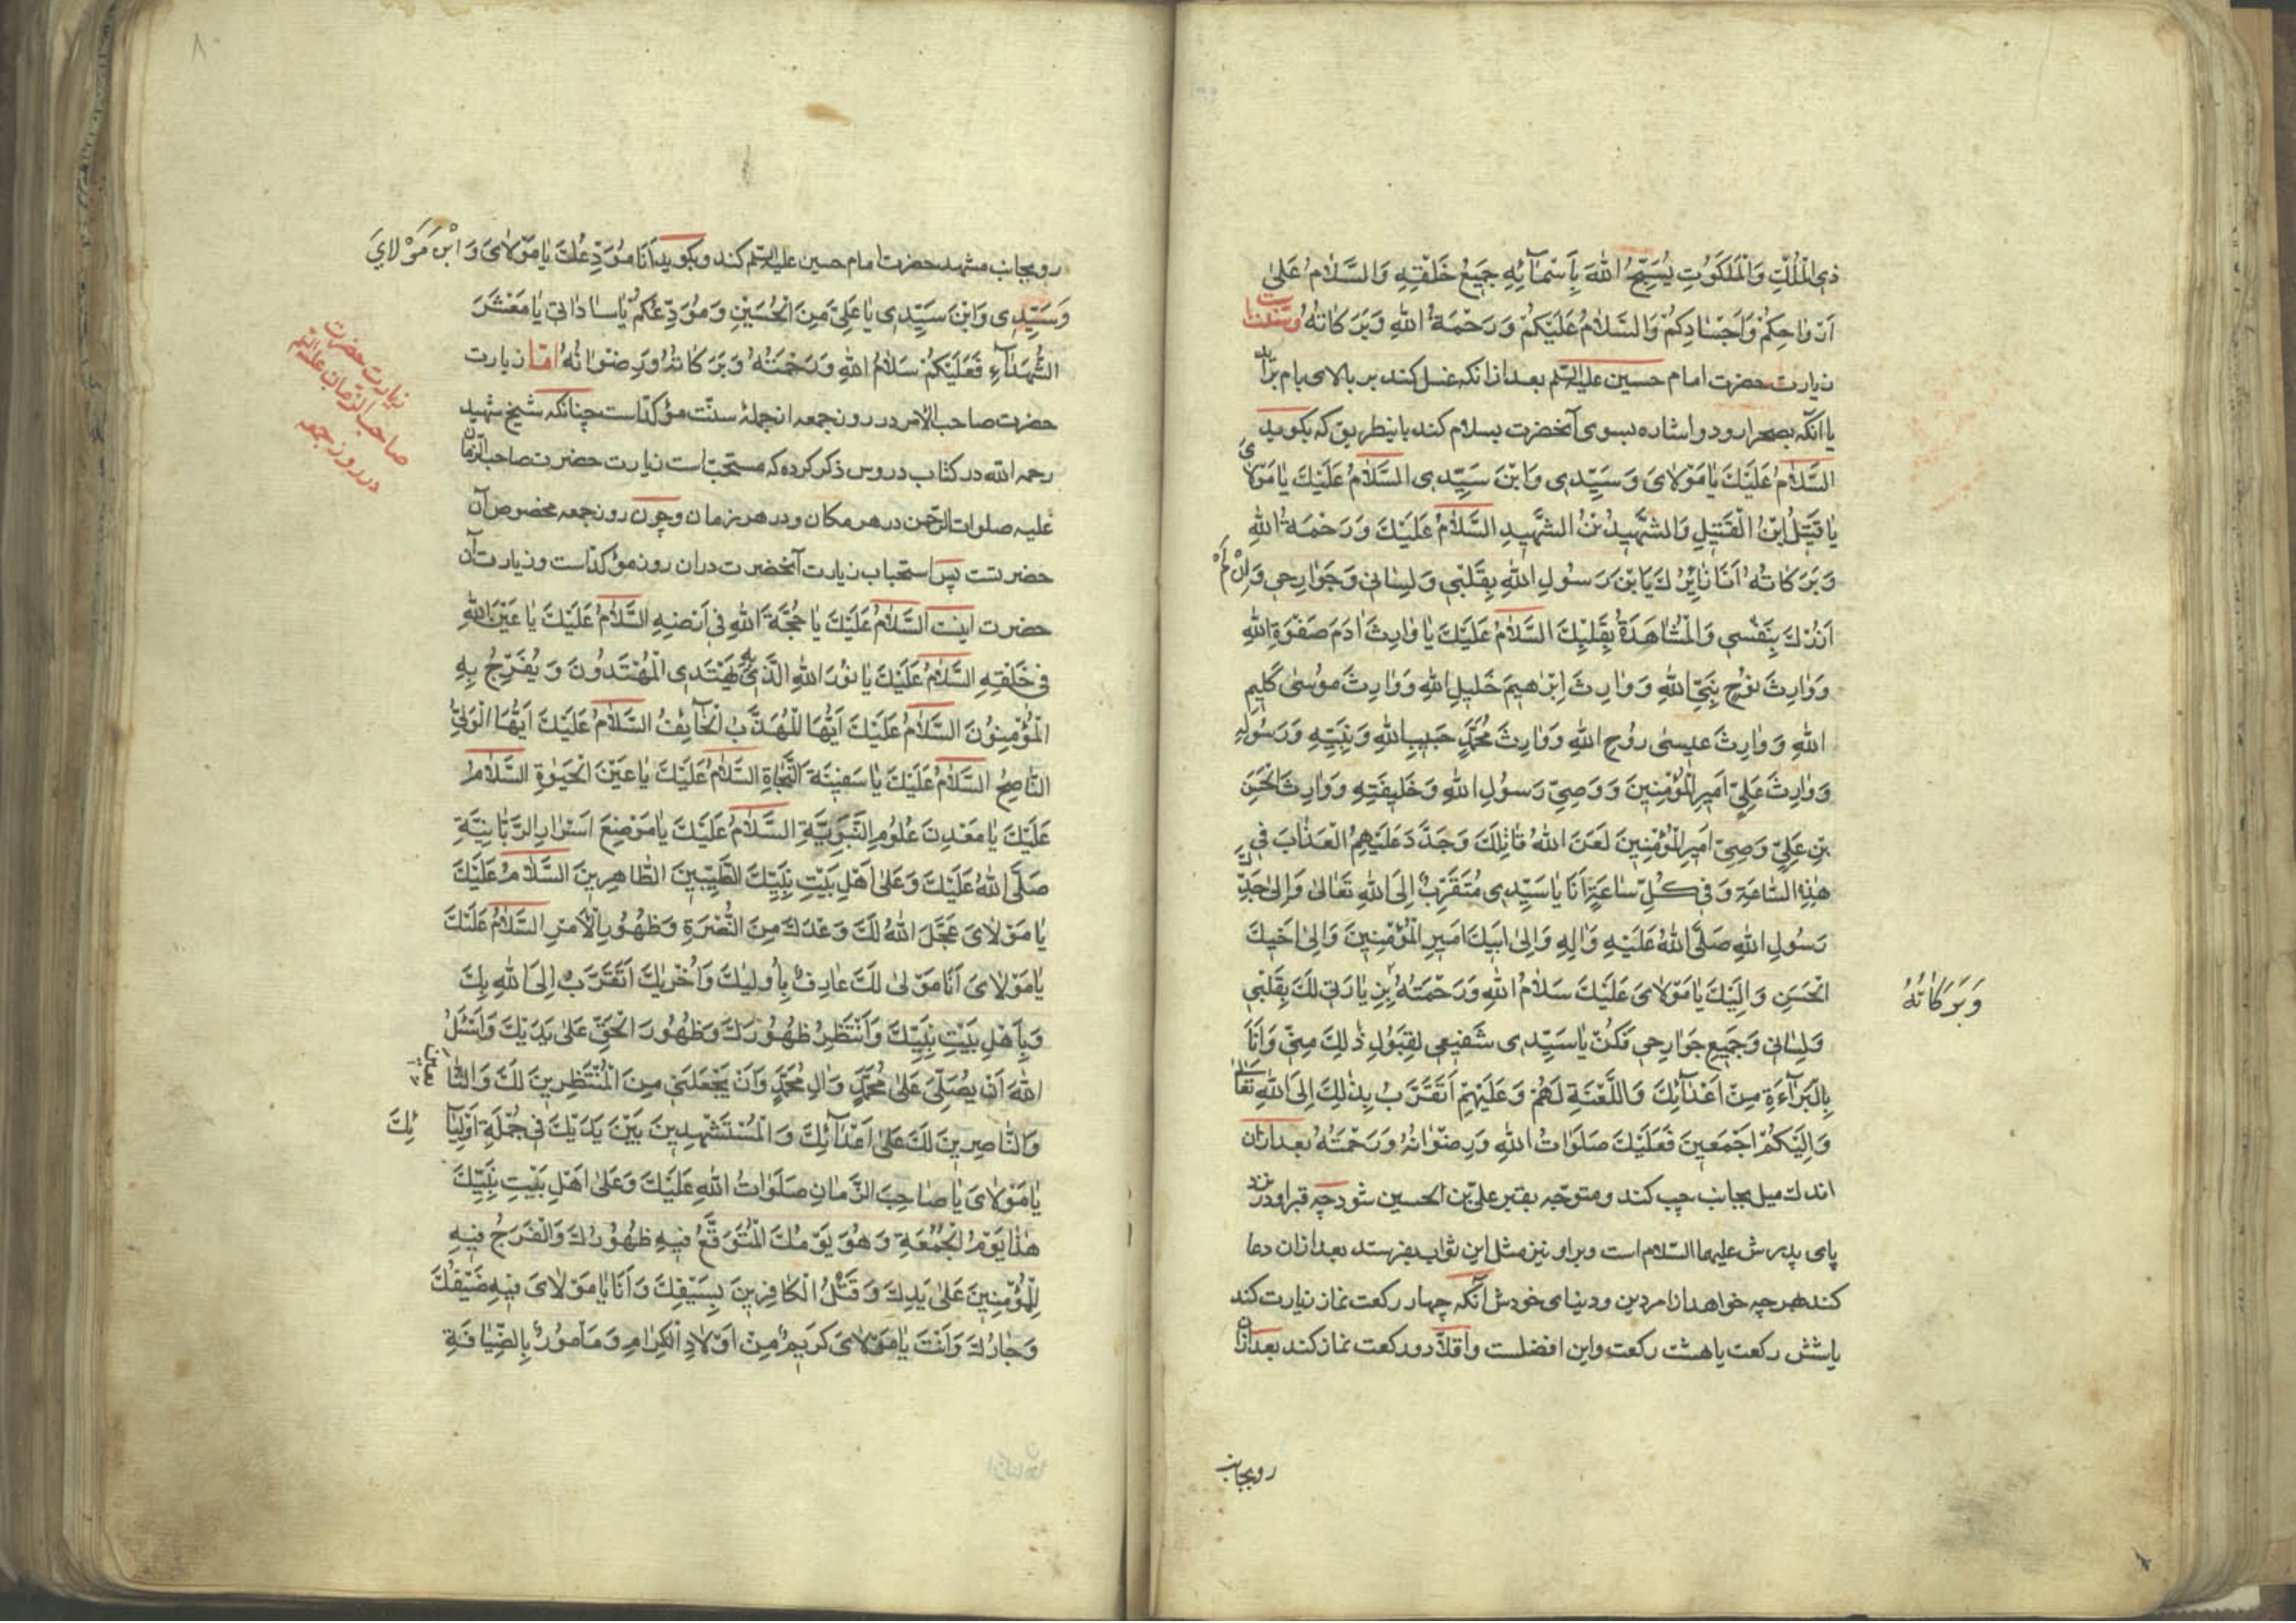 ذِی الْمُلْكِ وَالْمَلَكُوتِ يُسَبِّحُ اللهَ بِاَسْمَآئِهِ جَمِيعُ خَلْقِهِ وَالسَّلَامُ عَلیٰ
اَرْوَاحِكُمْ وَاَجْسَادِكُمْ وَالسَّلَامُ عَلَيْكُمْ وَرَحْمَةُ اللهِ وَبَرَكَاتُهُ
زیارت حضرت امام حسین علیه السلم بعد ازانکه غسل کند بر بالای بام براید
یا انکه بصحرا رود و اشاره بسوی آنحضرت بسلام کند باینطریق که بکوید
السَّلَامُ عَلَيْكَ يَا مَوْلَایَ وَسَيِّدِی وَابْنَ سَيِّدِی السَّلَامُ عَلَيْكَ يَا مَوْلَایَ
يَا قَتِيلُ ابْنُ الْقَتِيلِ وَالشَّهِيدُ بْنُ الشَّهِيدِ السَّلَامُ عَلَيْكَ وَرَحْمَةُ اللهِ
وَبَرَكَاتُهُ اَنَا زَائِرُكَ يَا بْنَ رَسُولِ اللهِ بِقَلْبِی وَلِسَانِی وَجَوَارِحِی وَاِنْ لَمْ
اَزُرْكَ بِنَفْسِی وَالْمُشَاهَدَةُ بِقَلْبِكَ السَّلَامُ عَلَيْكَ يَا وَارِثَ اٰدَمَ صَفْوَةِ اللهِ
وَوَارِثَ نُوْحٍ نَبِیِّ اللهِ وَوَارِثَ اِبْرَاهِيمَ خَلِيلِ اللهِ وَوَارِثَ مُوسٰی كَلِيمِ
اللهِ وَوَارِثَ عِيسٰی رُوْحِ اللهِ وَوَارِثَ مُحَمَّدٍ حَبِيبِ اللهِ وَنَبِيِّهِ وَرَسُولِهِ
وَوَارِثَ عَلِیٍّ اَمِيرِ الْمُؤْمِنِينَ وَوَصِیِّ رَسُولِ اللهِ وَخَلِيفَتِهِ وَوَارِثَ الْحَسَنِ
بْنِ عَلِیٍّ وَصِیِّ اَمِيرِ الْمُؤْمِنِينَ لَعَنَ اللهُ قَاتِلَكَ وَجَدَّدَ عَلَيْهِمُ الْعَذَابَ فِی
هٰذِهِ السَّاعَةِ وَفِی كُلِّ سَاعَةٍ اَنَا يَا سَيِّدِی مُتَقَرِّبٌ اِلَی اللهِ تَعَالیٰ وَاِلیٰ جَدِّكَ
رَسُولِ اللهِ صَلَّی اللهُ عَلَيْهِ وَاٰلِهِ وَاِلیٰ اَبِيكَ اَمِيرِ الْمُؤْمِنِينَ وَاِلیٰ اَخِيكَ
الْحَسَنِ وَاِلَيْكَ يَا مَوْلَایَ عَلَيْكَ سَلَامُ اللهِ وَرَحْمَتُهُ بِزِيَارَتِی لَكَ بِقَلْبِی
وَبَرَكَاتُهُ
وَلِسَانِی وَجَمِيعِ جَوَارِحِی فَكُنْ يَا سَيِّدِی شَفِيعِی لِقَبُولِ ذٰلِكَ مِنِّی وَاَنَا
بِالْبَرَآءَةِ مِنْ اَعْدَآئِكَ وَاللَّعْنَةِ لَهُمْ وَعَلَيْهِمْ اَتَقَرَّبُ بِذٰلِكَ اِلَی اللهِ تَعَالٰی
وَاِلَيْكُمْ اَجْمَعِينَ فَعَلَيْكَ صَلَوَاتُ اللهِ وَرِضْوَانُهُ وَرَحْمَتُهُ بعد ازان
اندك میل بجانب چپ کند و متوجه بقبر علی بن الحسین شود چه قبر او در نزد
پای پدرش علیهما السلام است و بر او نیز مثل این ثواب بفرستد بعد ازان دعا
کند هرچه خواهد از امر دین و دنیای خودش آنکه چهار رکعت نماز زیارت کند
یا شش رکعت یا هشت رکعت و این افضلست و اقلاً دو رکعت نماز کند بعد ازان
رو بجانب
رو بجانب مشهد حضرت امام حسین علیه السلم کند و بکوید اَنَا مُوَدِّعُكَ يَا مَوْلَایَ وَابْنَ مَوْلَایَ
وَسَيِّدِی وَابْنَ سَيِّدِی يَا عَلِیَّ بْنَ الْحُسَيْنِ وَمُوَدِّعُكُمْ يَا سَادَاتِی يَا مَعْشَرَ
الشُّهَدَآءِ فَعَلَيْكُمْ سَلَامُ اللهِ وَرَحْمَتُهُ وَبَرَكَاتُهُ وَرِضْوَانُهُ امّا زیارت
زیارت حضرت
صاحب الزمان علیه السلم
در روز جمعه
حضرت صاحب الامر در روز جمعه از جملۀ سنّت مؤکّد است چنانکه شیخ شهید
رحمه الله در کتاب دروس ذکر کرده که مستحبّ است زیارت حضرت صاحب الزمان
علیه صلوات الرّحمن در هر مکان و در هر زمان و چون روز جمعه مخصوص آن
حضرتست پس استحباب زیارت آنحضرت دران روز مؤکّد است و زیارت آن
حضرت اینست السَّلَامُ عَلَيْكَ يَا حُجَّةَ اللهِ فِی اَرْضِهِ السَّلَامُ عَلَيْكَ يَا عَيْنَ اللهِ
فِی خَلْقِهِ السَّلَامُ عَلَيْكَ يَا نُورَ اللهِ الَّذِی بِهِ يَهْتَدِی الْمُهْتَدُونَ وَيُفَرِّجُ بِهِ
الْمُؤْمِنُونَ السَّلَامُ عَلَيْكَ اَيُّهَا الْمُهَذَّبُ الْخَآئِفُ السَّلَامُ عَلَيْكَ اَيُّهَا الْوَلِیُّ
النَّاصِحُ السَّلَامُ عَلَيْكَ يَا سَفِينَةَ النَّجَاةِ السَّلَامُ عَلَيْكَ يَا عَيْنَ الْحَيٰوةِ السَّلَامُ
عَلَيْكَ يَا مَعْدِنَ عُلُومِ النَّبَوِيَّةِ السَّلَامُ عَلَيْكَ يَا مَوْضِعَ اَسْرَارِ الرَّبَّانِيَّةِ
صَلَّی اللهُ عَلَيْكَ وَعَلیٰ اَهْلِ بَيْتِ نَبِيِّكَ الطَّيِّبِينَ الطَّاهِرِينَ السَّلَامُ عَلَيْكَ
يَا مَوْلَایَ عَجَّلَ اللهُ لَكَ وَعْدَكَ مِنَ النُّصْرَةِ وَظُهُورِ الْاَمْرِ السَّلَامُ عَلَيْكَ
يَا مَوْلَایَ اَنَا مَوْلیٰ لَكَ عَارِفٌ بِاُولِيٰكَ وَاُخْرِيٰكَ اَتَقَرَّبُ اِلَی اللهِ بِكَ
وَبِاَهْلِ بَيْتِ نَبِيِّكَ وَاَنْتَظِرُ ظُهُورَكَ وَظُهُورَ الْحَقِّ عَلیٰ يَدَيْكَ وَاَسْئَلُ
اللهَ اَنْ يُصَلِّیَ عَلیٰ مُحَمَّدٍ وَاٰلِ مُحَمَّدٍ وَاَنْ يَجْعَلَنِی مِنَ الْمُنْتَظِرِينَ لَكَ وَالتَّابِعِينَ
وَالنَّاصِرِينَ لَكَ عَلیٰ اَعْدَآئِكَ وَالْمُسْتَشْهَدِينَ بَيْنَ يَدَيْكَ فِی جُمْلَةِ اَوْلِيَآئِكَ
يَا مَوْلَایَ يَا صَاحِبَ الزَّمَانِ صَلَوَاتُ اللهِ عَلَيْكَ وَعَلیٰ اَهْلِ بَيْتِ نَبِيِّكَ
هٰذَا يَوْمُ الْجُمُعَةِ وَهُوَ يَوْمُكَ الْمُتَوَقَّعُ فِيهِ ظُهُورُكَ وَالْفَرَجُ فِيهِ
لِلْمُؤْمِنِينَ عَلیٰ يَدِكَ وَقَتْلُ الْكَافِرِينَ بِسَيْفِكَ وَاَنَا يَا مَوْلَایَ فِيهِ ضَيْفُكَ
وَجَارُكَ وَاَنْتَ يَا مَوْلَایَ كَرِيمٌ مِنْ اَوْلَادِ الْكِرَامِ وَمَأمُورٌ بِالضِّيَافَةِ